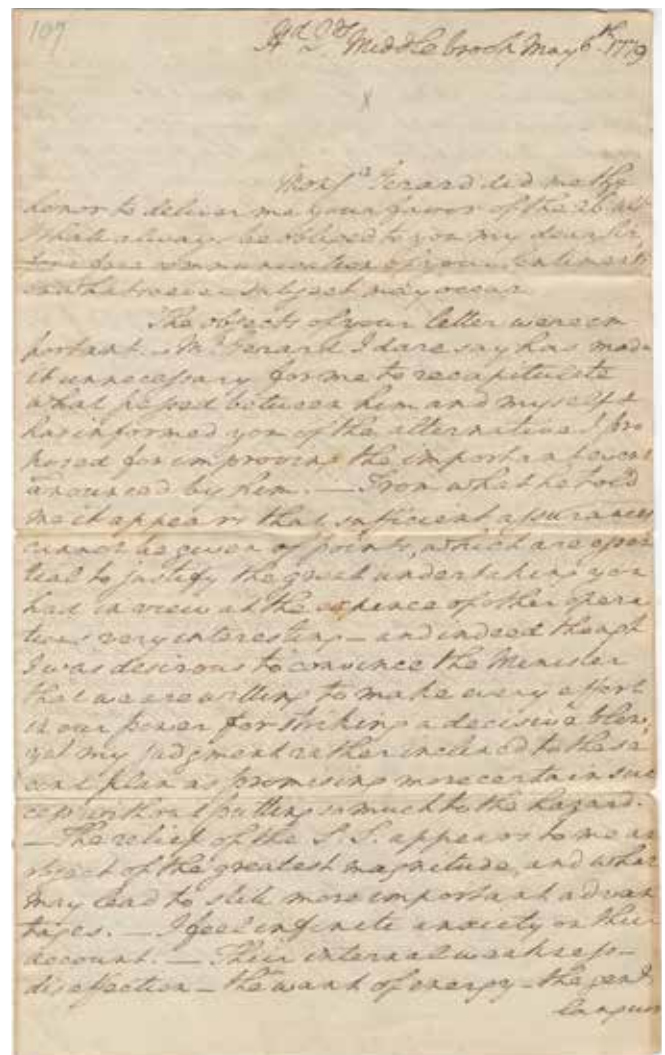 107
Hd Qrs Middlebrook May 6th 1779
Monsr Gerard did me the
honor to deliver me your favor of the 26 ulto
I shall always be obliged to you my dear Sir
for a free communication of your sentiments
on whatsoever subject may occur
The objects of your letter were im
portant. Mr Gerard I dare say has made
it unnecessary for me to recapitulate
what passed between him and myself &
has informed you of the alternative I pro
posed for improving the important event
anounced by him. — From what he told
me it appears that sufficient assurances
cannot be given of points, which are essen
tial to justify the great undertaking you
had in view at the expence of other opera
tions very interesting — and indeed though
I was desirous to convince the Minister
that we are willing to make every effort
in our power for striking a decisive blow,
yet my judgment rather inclined to the se
cond plan as promising more certain suc
cess without putting so much to the hazard.
— The relief of the S. S. appears to me an
object of the greatest magnitude, and what
may lead to still more important advan
tages. — I feel infinite anxiety on their
account. — Their internal weakness —
disaffection — the want of energy — the genl
languor